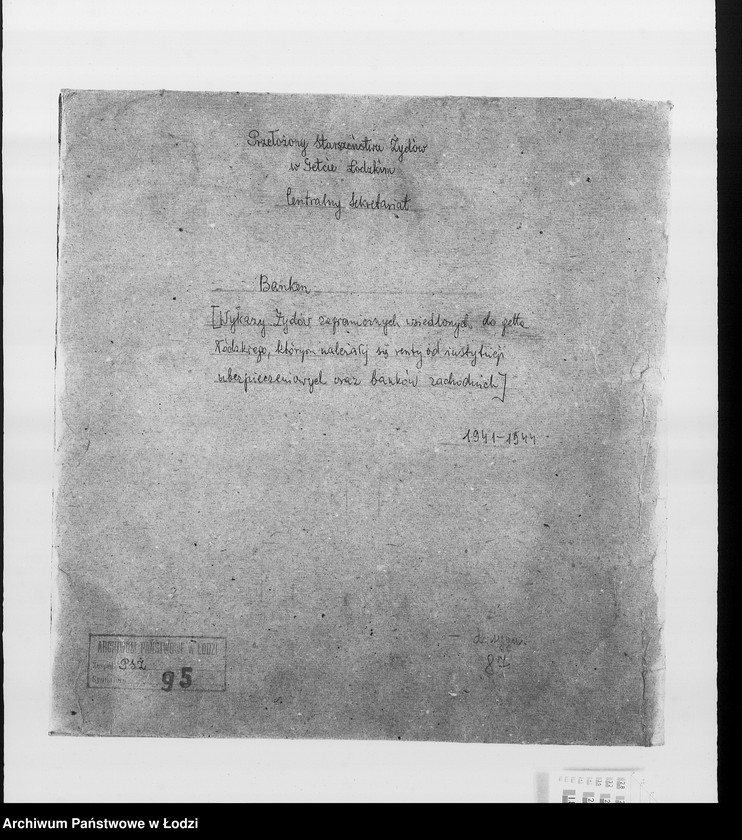 Przełożony Starszeństwa Żydów
w Getcie Łódzkim
Centralny Sekretariat
Banken
[Wykazy Żydów zagranicznych wsiedlonych do getta
Łódzkiego, którym należały się renty od instytucji
ubezpieczeniowych oraz banków zachodnich]
1941-1944
ARCHIWUM PAŃSTWOWE w ŁODZI
Zespół PSŻ
Sygnatura 95
Archiwum Państwowe w Łodzi